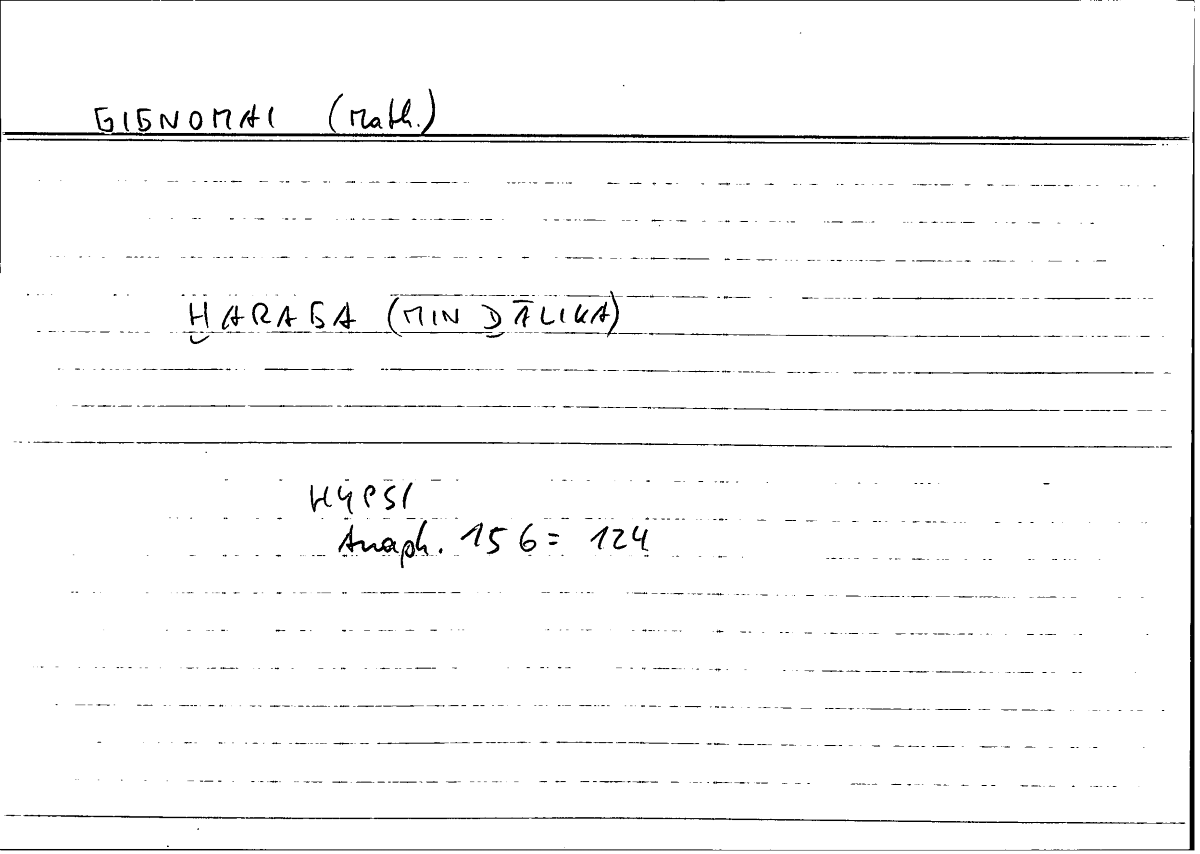 GIGNOMAI (Math.)
ḪARAGA (MIN ḎĀLIKA)
HYPSI
Anaph. 156 = 124